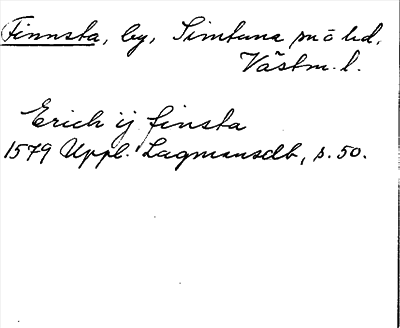 Finnsta, by, Simtuna sn o hd,
Västm. l.
Erich ij finsta
1579 Uppl. Lagmansdb, s. 50.